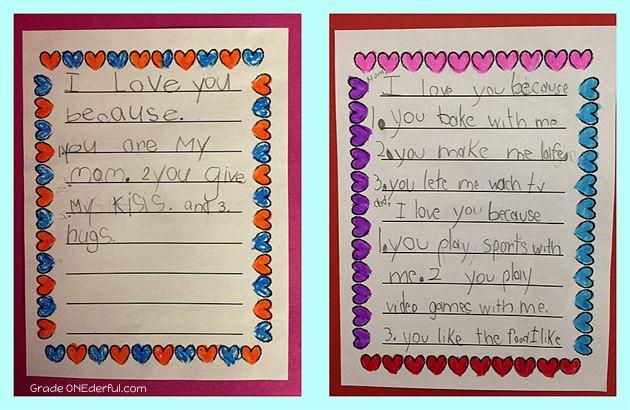 I Love you
because.
1. you are My
mom. 2 you give
My Kiss. and 3.
hugs.
Grade ONEderful.com
Mom
I love you because
1. you bake with me
2. you make me latfe
3. you lete me wach tv
dad
I love you because
1. you play sports with
me. 2 you play
video games with me.
3. you like the food I like